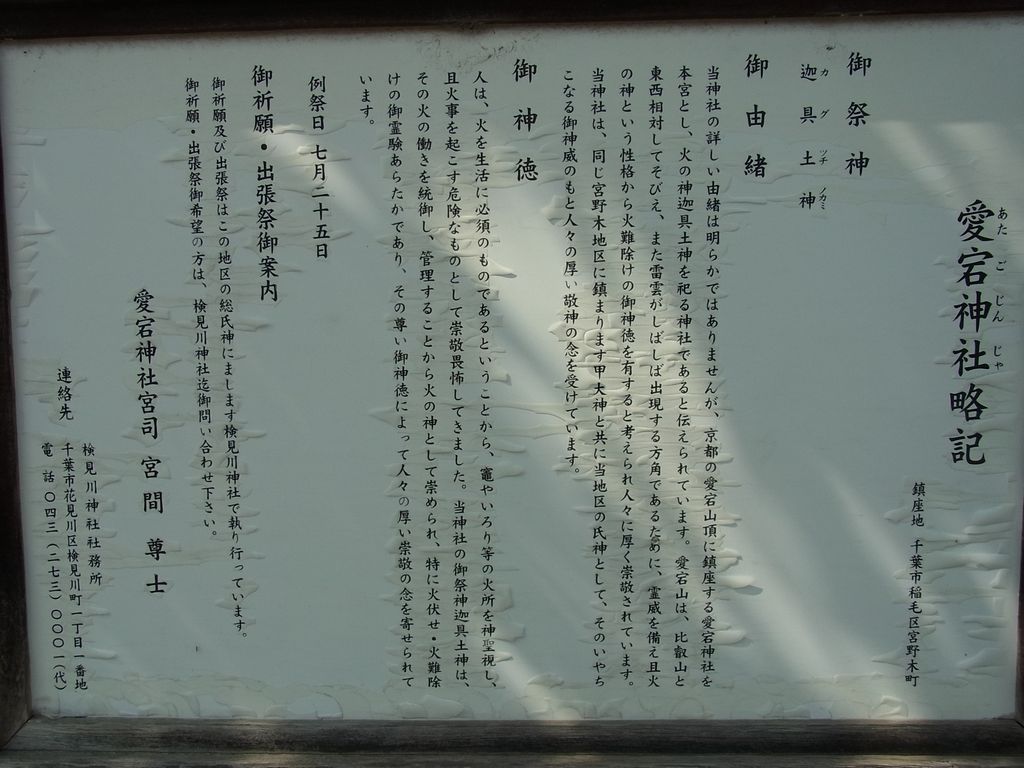 愛宕神社略記
あたごじんじゃ
鎮座地 千葉市稲毛区宮野木町
御祭神
迦具土神
カグツチノカミ
御由緒
当神社の詳しい由緒は明らかではありませんが、京都の愛宕山頂に鎮座する愛宕神社を
本宮とし、火の神迦具土神を祀る神社であると伝えられています。愛宕山は、比叡山と
東西相対してそびえ、また雷雲がしばしば出現する方角であるために、霊威を備え且火
の神という性格から火難除けの御神徳を有すると考えられ人々に厚く崇敬されています。
当神社は、同じ宮野木地区に鎮まります甲大神と共に当地区の氏神として、そのいやち
こなる御神威のもと人々の厚い敬神の念を受けています。
御神徳
人は、火を生活に必須のものであるということから、竈やいろり等の火所を神聖視し、
且火事を起こす危険なものとして崇敬畏怖してきました。当神社の御祭神迦具土神は、
その火の働きを統御し、管理することから火の神として崇められ、特に火伏せ・火難除
けの御霊験あらたかであり、その尊い御神徳によって人々の厚い崇敬の念を寄せられて
います。
例祭日 七月二十五日
御祈願・出張祭御案内
御祈願及び出張祭はこの地区の総氏神にまします検見川神社で執り行っています。
御祈願・出張祭御希望の方は、検見川神社迄御問い合わせ下さい。
愛宕神社宮司 宮間 尊士
連絡先
検見川神社社務所
千葉市花見川区検見川町一丁目一番地
電話〇四三(二七三)〇〇〇一(代)